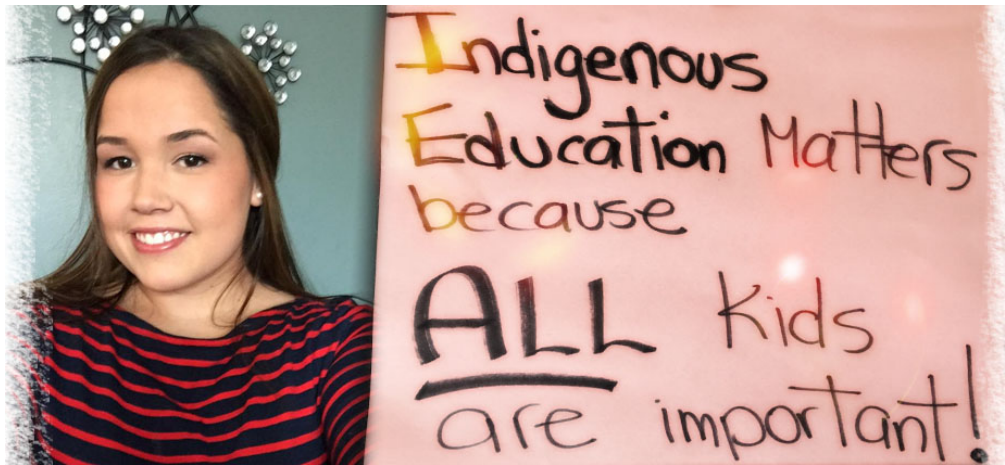 Indigenous
Education Matters
because
ALL Kids
are important!